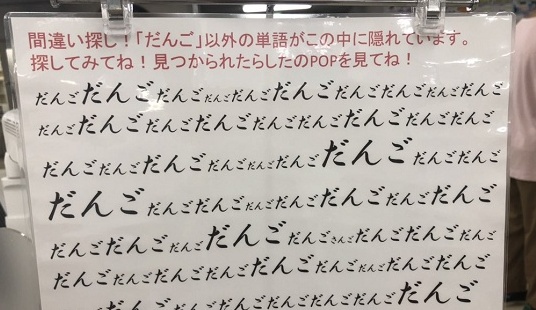 間違い探し！「だんご」以外の単語がこの中に隠れています。
探してみてね！見つかられたらしたのPOPを見てね！
だんごだんごだんごだんごだんごだんごだんごだんごだんごだんご
だんごだんごだんごだんごだんごだんごだんごだんごだんご
だんごだんごだんごだんごだんごだんごだんごだんごだんご
だんごだんごだんごだんごだんごだんごだんごだんご
だんごだんごだんごだんごだんごさんごだんごだんごだんご
だんごだんごだんごだんごだんごだんごだんごだんごだんご
だんごだんごだんごだんごだんごだんごだんご